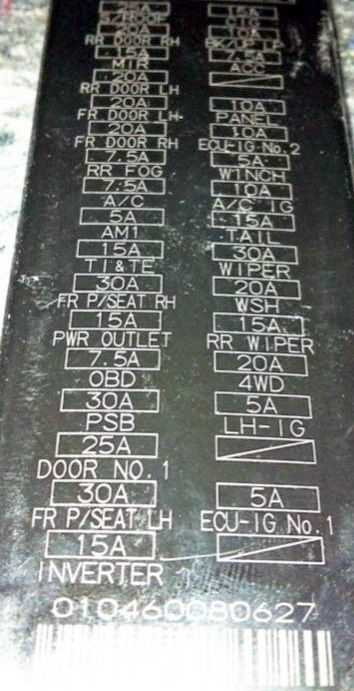 25A 15A
S/ROOF CIG
20A 10A
RR DOOR RH BK/UP LP
15A 7.5A
MIR ACC
20A
RR DOOR LH
20A 10A
FR DOOR LH PANEL
20A 10A
FR DOOR RH ECU-IG No.2
7.5A 5A
RR FOG WINCH
7.5A 10A
A/C A/C IG
5A 15A
AM1 TAIL
15A 30A
TI&TE WIPER
30A 20A
FR P/SEAT RH WSH
15A 15A
PWR OUTLET RR WIPER
7.5A 20A
OBD 4WD
30A 5A
PSB LH-IG
25A
DOOR NO.1
30A 5A
FR P/SEAT LH ECU-IG No.1
15A
INVERTER
010460080627